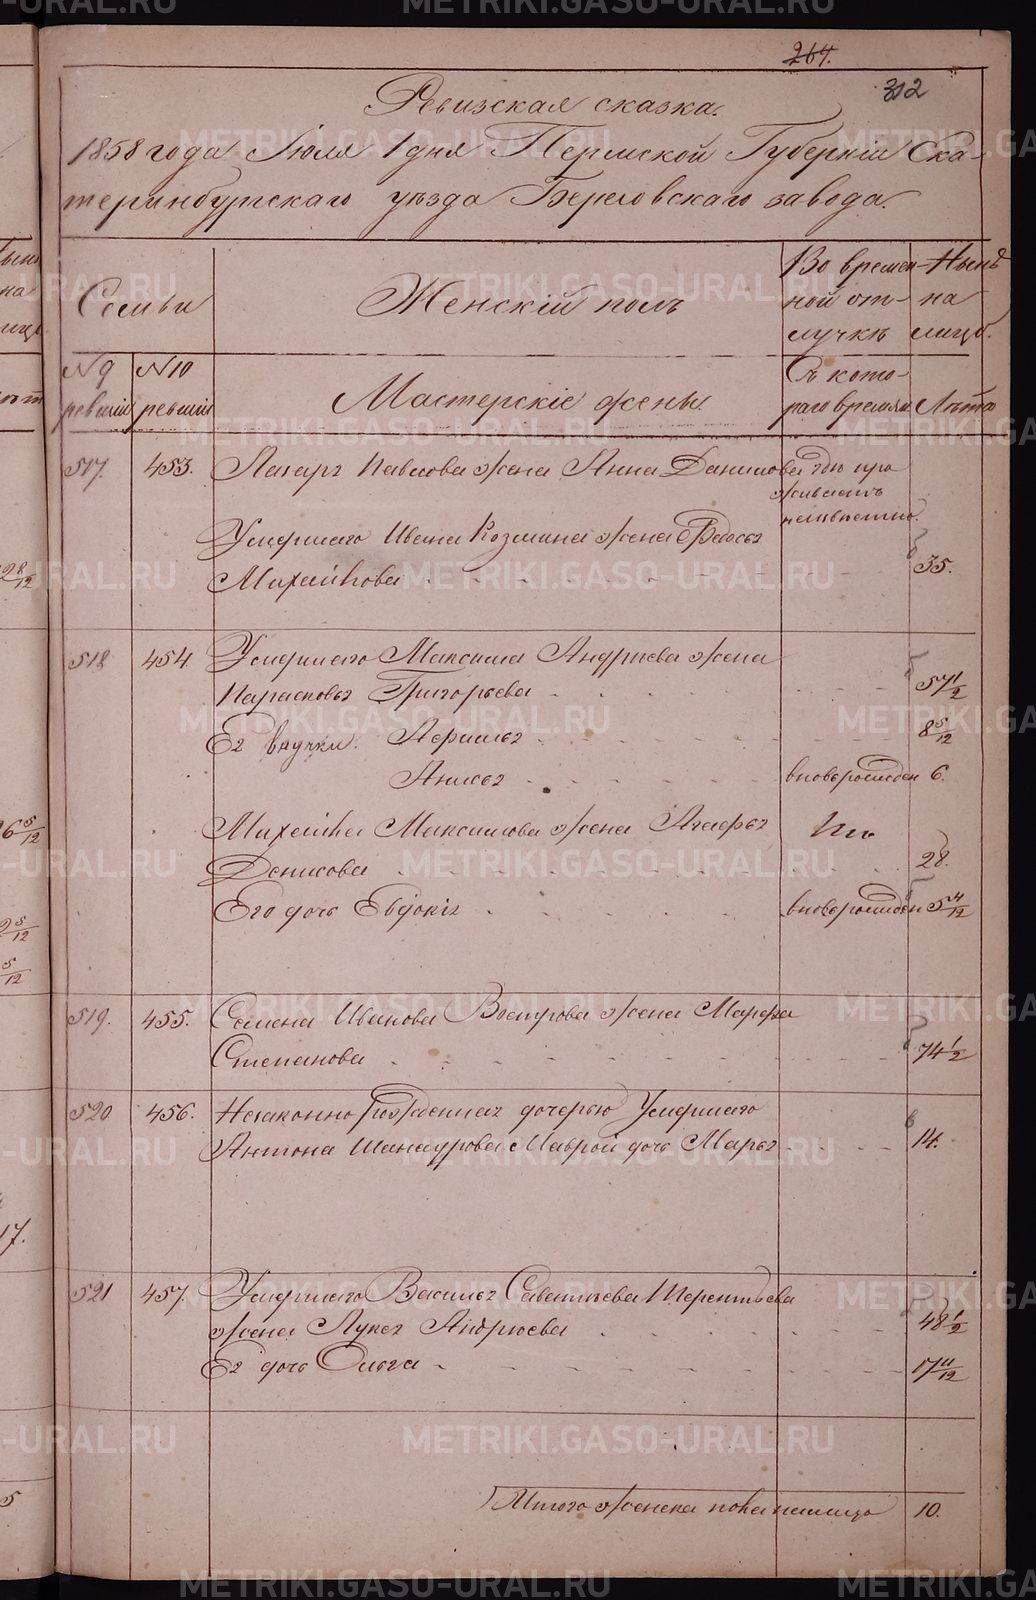 264.
312
Ревизская сказка.
1858 года Июля 1 дня Пермской Губернии Ека-
теринбургскаго уѣзда Березовскаго завода.
Семьи
Женскій полъ
Во времен-
ной от-
лучкѣ
Нынѣ
на
лицо.
№ 9
ревизіи
№ 10
ревизіи
Мастерскіе жены
Съ кото-
раго времяни
Лѣта
517. 453. Лазаря Павлова жена Анна Данилова гдѣ про
живаетъ
неизвѣстно.
Умершаго Ивана Козмина жена Федосья
Михайлова 35.
518 454 Умершаго Максима Андрѣева жена
Парасковья Григорьева 57 1/2
Ея внучки. Афимья 8 5/12
Анисья вновьрожден 6.
Михайла Максимова жена Агафья
Денисова 28.
Его дочь Евдокія вновьрожден 5 4/12
519. 455. Семена Иванова Вострова жена Марфа
Степанова 74 1/2
520 456. Незаконно рожденная дочерью Умершаго
Антона Шанаурова Маврой дочь Марья 14.
521 457. Умершаго Василья Савельева Терентьева
жена Лукея Андрюева 48 1/2
Ея дочь Ольга 17 11/12
Итого женска пола налицо 10.
METRIKI.GASO-URAL.RU